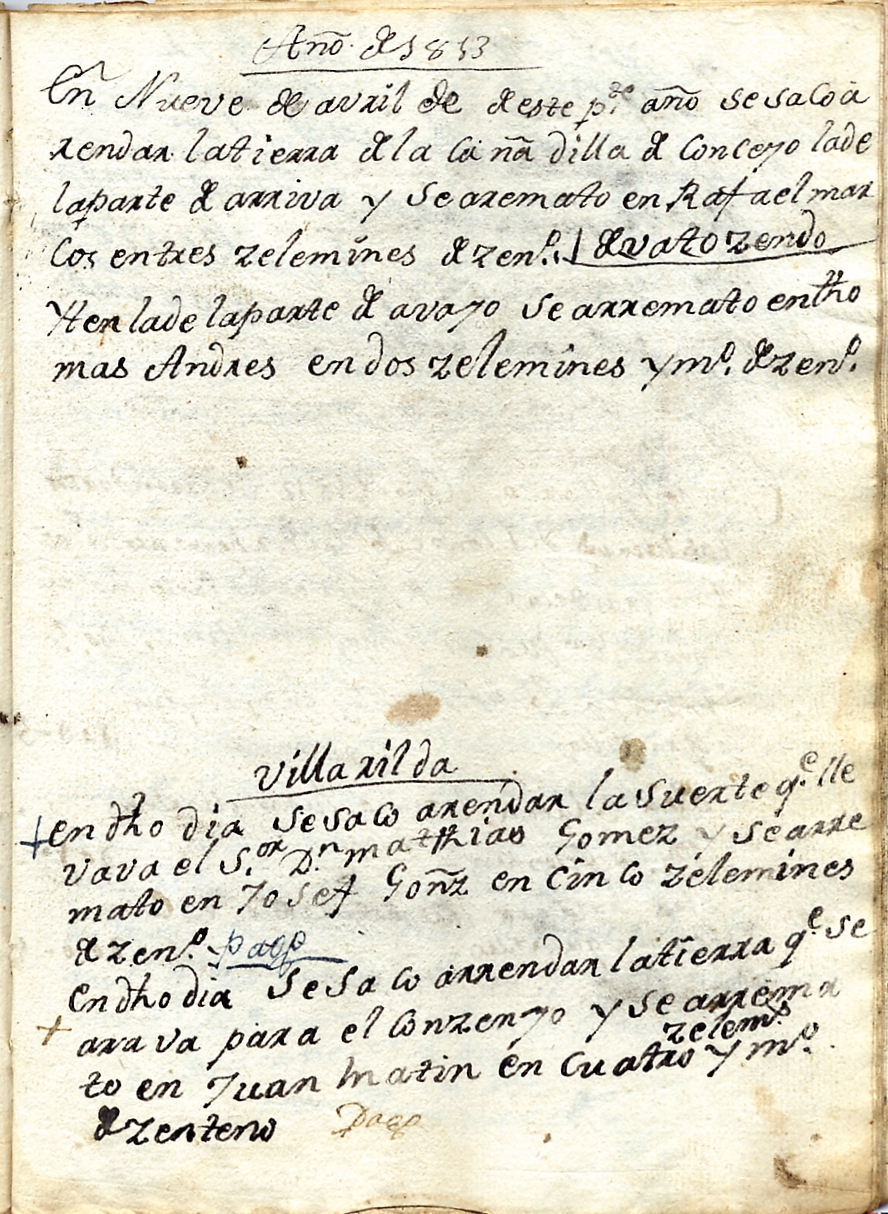 Año de 1813
En Nueve de avril de deste pte. año se saco a
rendar la tierra de la Cañadilla de Conceyo la de
la parte de arriva y se aremato en Rafael mar
cos en tres zelemines de zeno.
Yten la de la parte de avayo se arremato en tho
mas Andres en dos zelemines y mo. de zeno.
villarilda
+ en dho dia se saco arendar la suerte qe. lle
vava el Sor. Dn. mathias Gomez y se arre
mato en Josef Goñz en cinco zelemines
de zeno. pagó
En dho dia se saco arrendar la tierra qe. se
+ arava para el Conzenyo y se arrema
to en Juan Matin en Cuatro zelems y mo.
de zenteno Pagó